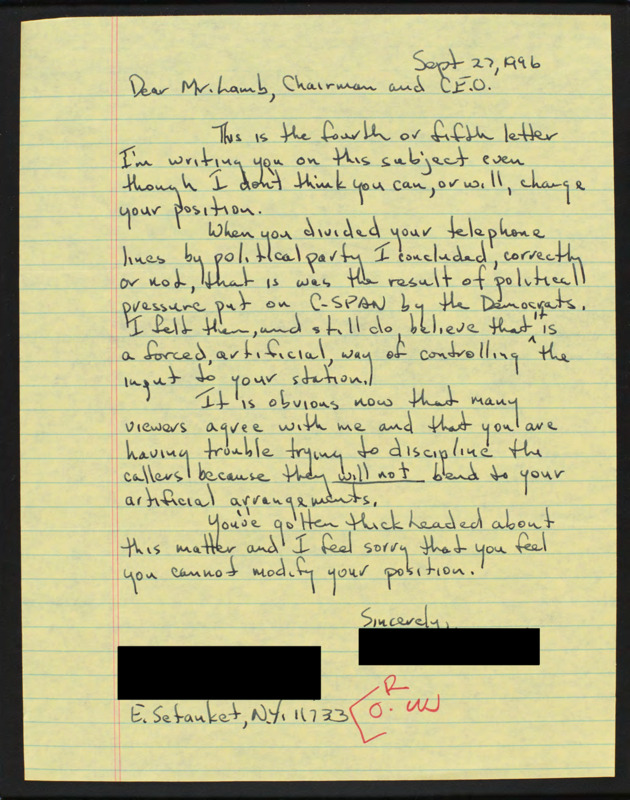 Sept 27, 1996
Dear Mr. Lamb, Chairman and C.E.O.
This is the fourth or fifth letter
I'm writing you on this subject even
though I don't think you can, or will, change
your position.
When you divided your telephone
lines by political party I concluded, correctly
or not, that is was the result of politicall
pressure put on C-SPAN by the Democrats.
I felt then, and still do, believe that it is
a forced, artificial, way of controlling the
input to your station.
It is obvious now that many
viewers agree with me and that you are
having trouble trying to discipline the
callers because they will not bend to your
artificial arrangements.
You've gotten thickheaded about
this matter and I feel sorry that you feel
you cannot modify your position.
Sincerely,
E. Setauket, N.Y. 11733
R